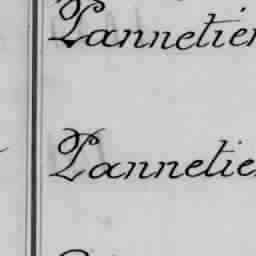 Pannetier
Pannetie